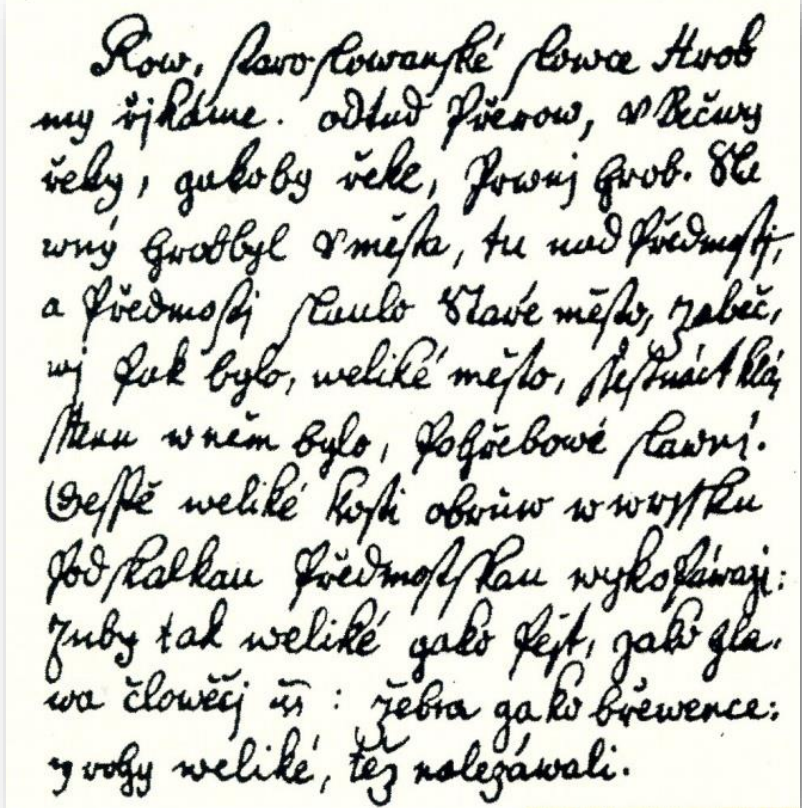 Row, staroslowanské slowce Hrob
my řjkáme. odtud Přerow, v Bečwy
řeky, gakoby řekl, Prwnj hrob. Sla
wný hrob byl v města, tu nad Předmostj,
a Předmostj slaulo Staré město, Zabeč,
nj pak bylo, weliké město, ssestnáct klá,
sterů w něm bylo, Pohřebowé slawní.
Gesstě weliké kosti obrůw w wrssku
pod skalkau Předmostskau wykopáwagj:
Zuby tak weliké gako pěst, gako hla,
wa člowěčj : žebra gako břewence:
y rohy weliké, též nalezáwali.